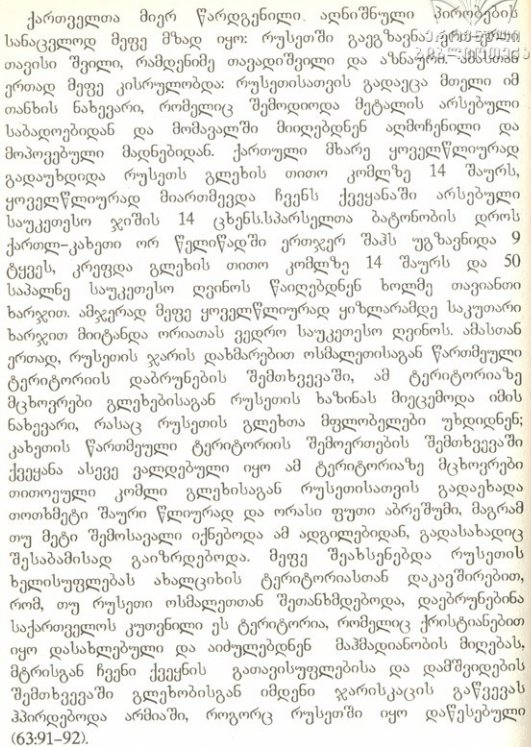 ქართველთა მიერ წარდგენილი აღნიშნული პირობების
სანაცვლოდ მეფე მზად იყო: რუსეთში გაეგზავნა ერთ-ერთი
თავისი შვილი, რამდენიმე თავადიშვილი და აზნაური. ამასთან
ერთად მეფე კისრულობდა: რუსეთისათვის გადაეცა მთელი იმ
თანხის ნახევარი, რომელიც შემოდიოდა მეტალის არსებული
საბადოებიდან და მომავალში მიიღებდნენ აღმოჩენილი და
მოპოვებული მადნებიდან. ქართული მხარე ყოველწლიურად
გადაუხდიდა რუსეთს გლეხის თითო კომლზე 14 შაურს,
ყოველწლიურად მიართმევდა ჩვენს ქვეყანაში არსებული
საუკეთესო ჯიშის 14 ცხენს.სპარსელთა ბატონობის დროს
ქართლ-კახეთი ორ წელიწადში ერთჯერ შაჰს უგზავნიდა 9
ტყვეს, კრეფდა გლეხის თითო კომლზე 14 შაურს და 50
საპალნე საუკეთესო ღვინოს წაიღებდნენ ხოლმე თავიანთი
ხარჯით. ამჯერად მეფე ყოველწლიურად ყიზლარამდე საკუთარი
ხარჯით მიიტანდა ორიათას ვედრო საუკეთესო ღვინოს. ამასთან
ერთად, რუსეთის ჯარის დახმარებით ოსმალეთისაგან წართმეული
ტერიტორიის დაბრუნების შემთხვევაში, ამ ტერიტორიაზე
მცხოვრები გლეხებისაგან რუსეთის ხაზინას მიეცემოდა იმის
ნახევარი, რასაც რუსეთის გლეხთა მფლობელები უხდიდნენ;
კახეთის წართმეული ტერიტორიის შემოერთების შემთხვევაში
ქვეყანა ასევე ვალდებული იყო ამ ტერიტორიაზე მცხოვრები
თითოეული კომლი გლეხისაგან რუსეთისათვის გადაეხადა
თოთხმეტი შაური წლიურად და ორასი ფუთი აბრეშუმი, მაგრამ
თუ მეტი შემოსავალი იქნებოდა ამ ადგილებიდან, გადასახადიც
შესაბამისად გაიზრდებოდა. მეფე შეახსენებდა რუსეთის
ხელისუფლებას ახალციხის ტერიტორიასთან დაკავშირებით,
რომ, თუ რუსეთი ოსმალეთთან შეთანხმდებოდა, დაებრუნებინა
საქართველოს კუთვნილი ეს ტერიტორია, რომელიც ქრისტიანებით
იყო დასახლებული და აიძულებდნენ მაჰმადიანობის მიღებას,
მტრისგან ჩვენი ქვეყნის გათავისუფლებისა და დამშვიდების
შემთხვევაში გლეხობისგან იმდენი ჯარისკაცის გაწვევას
ჰპირდებოდა არმიაში, როგორც რუსეთში იყო დაწესებული
(63:91-92).